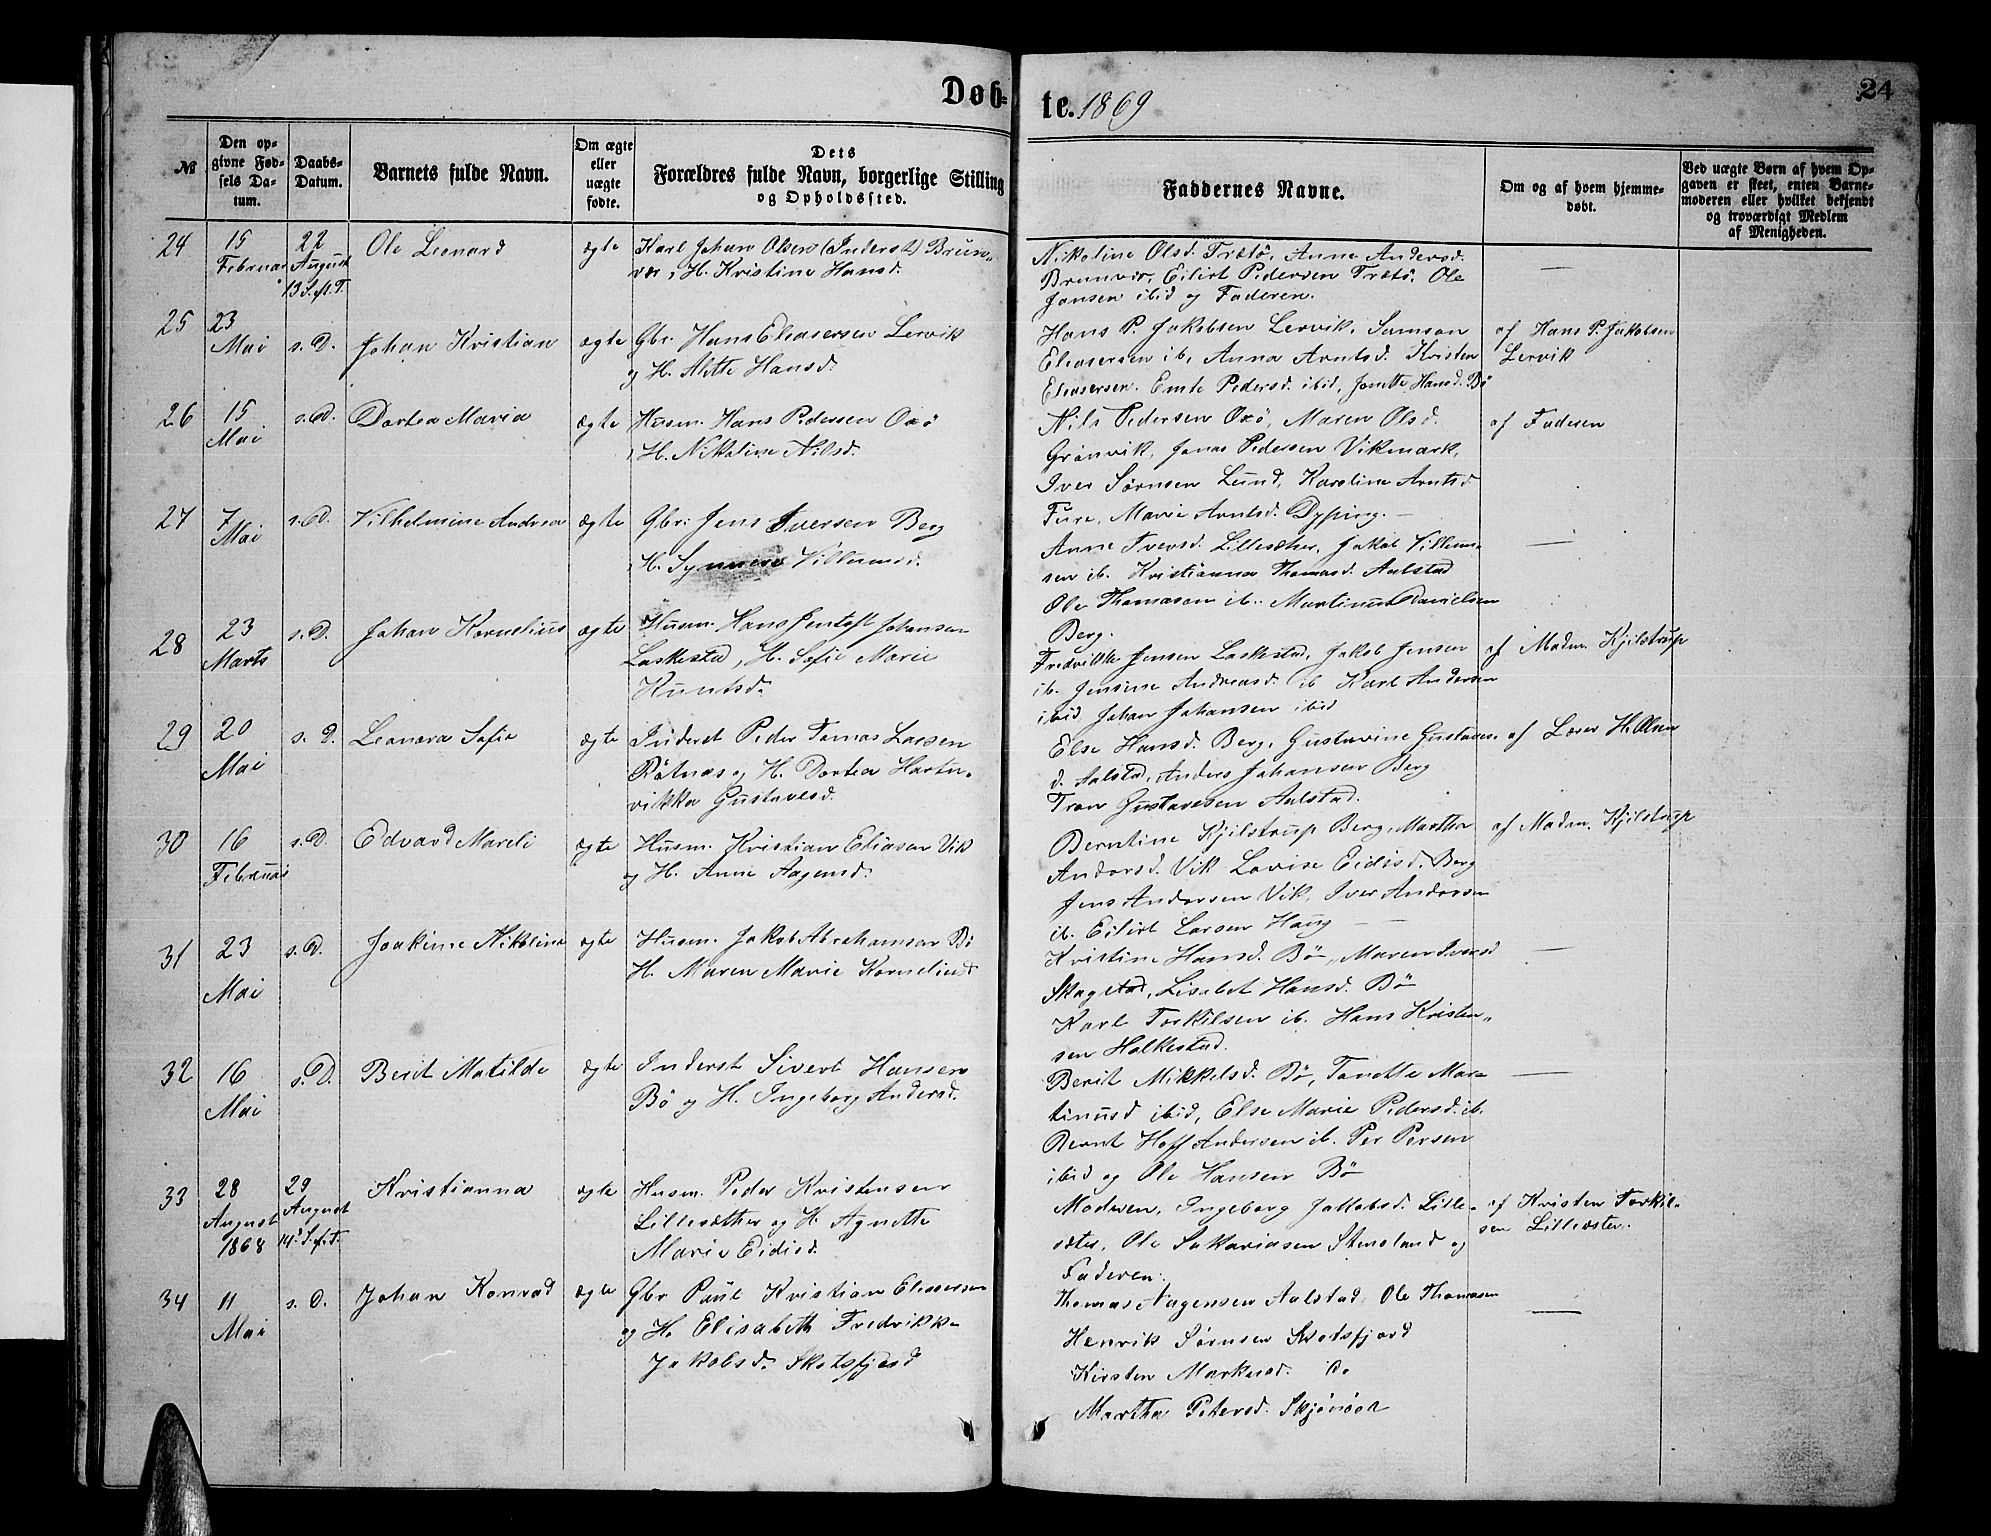 Døb-
te. 1869
24
№
Den op-
givne Fød-
sels Da-
tum.
Daabs-
Datum.
Barnets fulde Navn.
Om ægte
eller
uægte
fødte.
Dets
Forældres fulde Navn, borgerlige Stilling
og Opholdssted.
Faddernes Navne.
Om og af hvem hjemme-
døbt.
Ved uægte Børn af hvem Op-
gaven er skeet, enten Barne-
moderen eller hvilket bekjendt
og troværdigt Medlem
af Menigheden.
24
15
Februar
22
August
13 S. e. T.
Ole Leonard
ægte
Karl Johan Olsen (Inderst) Brun-
vær, H. Kristine Hansd.
Nikoline Olsd. Trætø, Anne Andersd.
Brunvær, Eilert Pedersen Trætø, Ole
Jansen ibid og Faderen.
—
25
23
Mai
s. D.
Johan Kristian
ægte
Gbr. Hans Eleasersen Lervik
og H. Alette Hansd.
Hans P. Jakobsen Lervik, Samson
Eleasersen ib, Anna Arntsd. Kristen
Eleasersen. Emte Pedersd. ibid, Jonette Hansd. Bø
af Hans P. Jakobsen
Lervik
26
15
Mai
s. D.
Dortea Maria
ægte
Husm. Hans Pedersen Oxø
H. Nikoline Nilsd.
Nils Pedersen Oxø, Maren Olsd.
Grønvik, Jonas Pedersen Vikmark,
Iver Sørnsen Lund, Karoline Arntsd
Fure, Marie Arntsd. Dyping. —
af Faderen
27
7
Mai
s. D.
Vilhelmine Andrea
ægte
Gbr. Jens Iversen Berg
H. Villumsd.
Anne Iversd. Lillesæther, Jakob Villum-
sen ib. Kristianna Thomasd. Aalstad
Ole Thomasen ib. Martinus Danielsen
Berg.
—
28
23
Marts
s. D.
Johan Kornelius
ægte
Husm. Hans Jentoft Johansen
Laskestad, H. Sofie Marie
Kuntsd.
Fredrikke Jensen Laskestad, Jakob Jensen
ib. Jensine Andreasd. ib Karl Andersen
ibid Johan Johansen ibid
af Madm. Kjilstrup
29
20
Mai
s. D.
Leonora Sofie
ægte
Inderst Peder Tomas Larsen
Røtnes og H. Dortea Hartvi-
vikka Gustavesd.
Else Hansd. Berg, Gustavine Gustaves-
d. Aalstad, Anders Johansen Berg
Tron Gustavesen Aalstad.
af Lærer H. Olsen
30
16
Februar
s. D.
Edvard Mareli
ægte
Husm. Kristian Eliasen Vik
og H. Anne Aagensd.
Berntine Kjilstrup Berg, Martha
Andersd. Vik Lovise Eidisd. Berg
Jens Andersen Vik, Iver Andersen
ib. Eilert Larsen Haug —
af Madm. Kjilstrup
31
23
Mai
s. D.
Joakime Nikoline
ægte
Husm. Jakob Abrahamsen Bø
H. Maren Marie Korneliusd
Kristine Hansd. Bø, Maren Iversd
Skagstad, Lisabet Hansd. Bø
Karl Torkilsen ib. Hans Kristen-
sen Holkestad.
—
32
16
Mai
s. D.
Berit Matilde
ægte
Inderst Sivert Hansen
Bø og H. Ingeborg Andersd.
Berit Mikkelsd. Bø, Tanette Mar-
tinusd ibid, Else Marie Pedersd. ib.
Bernt Hoff Andersen ib. Per Persen
ibid og Ole Hansen Bø
—
33
28
August
1868
29
August
14 S. e. T.
Kristianna
ægte
Husm. Peder Kristensen
Lillesæther og H. Agnette
Marie Eidisd.
Moderen, Ingeborg Jakobsd. Lille-
sæter, Ole Sakariasen Stensland og
Faderen.
af Kristen Torkil-
sen Lillesæter.
34
11
Mai
s. D.
Johan Konrad
ægte
Gbr. Paul Kristian Eleasersen
og H. Elisabeth Fredrikke
Jakobsd. Skotsfjord
Thomas Aagensen Aalstad, Ole Thomasen
Henrik Sørnsen Skotsfjord
Kirsten Markusd. Do
Martha Petersd.
—